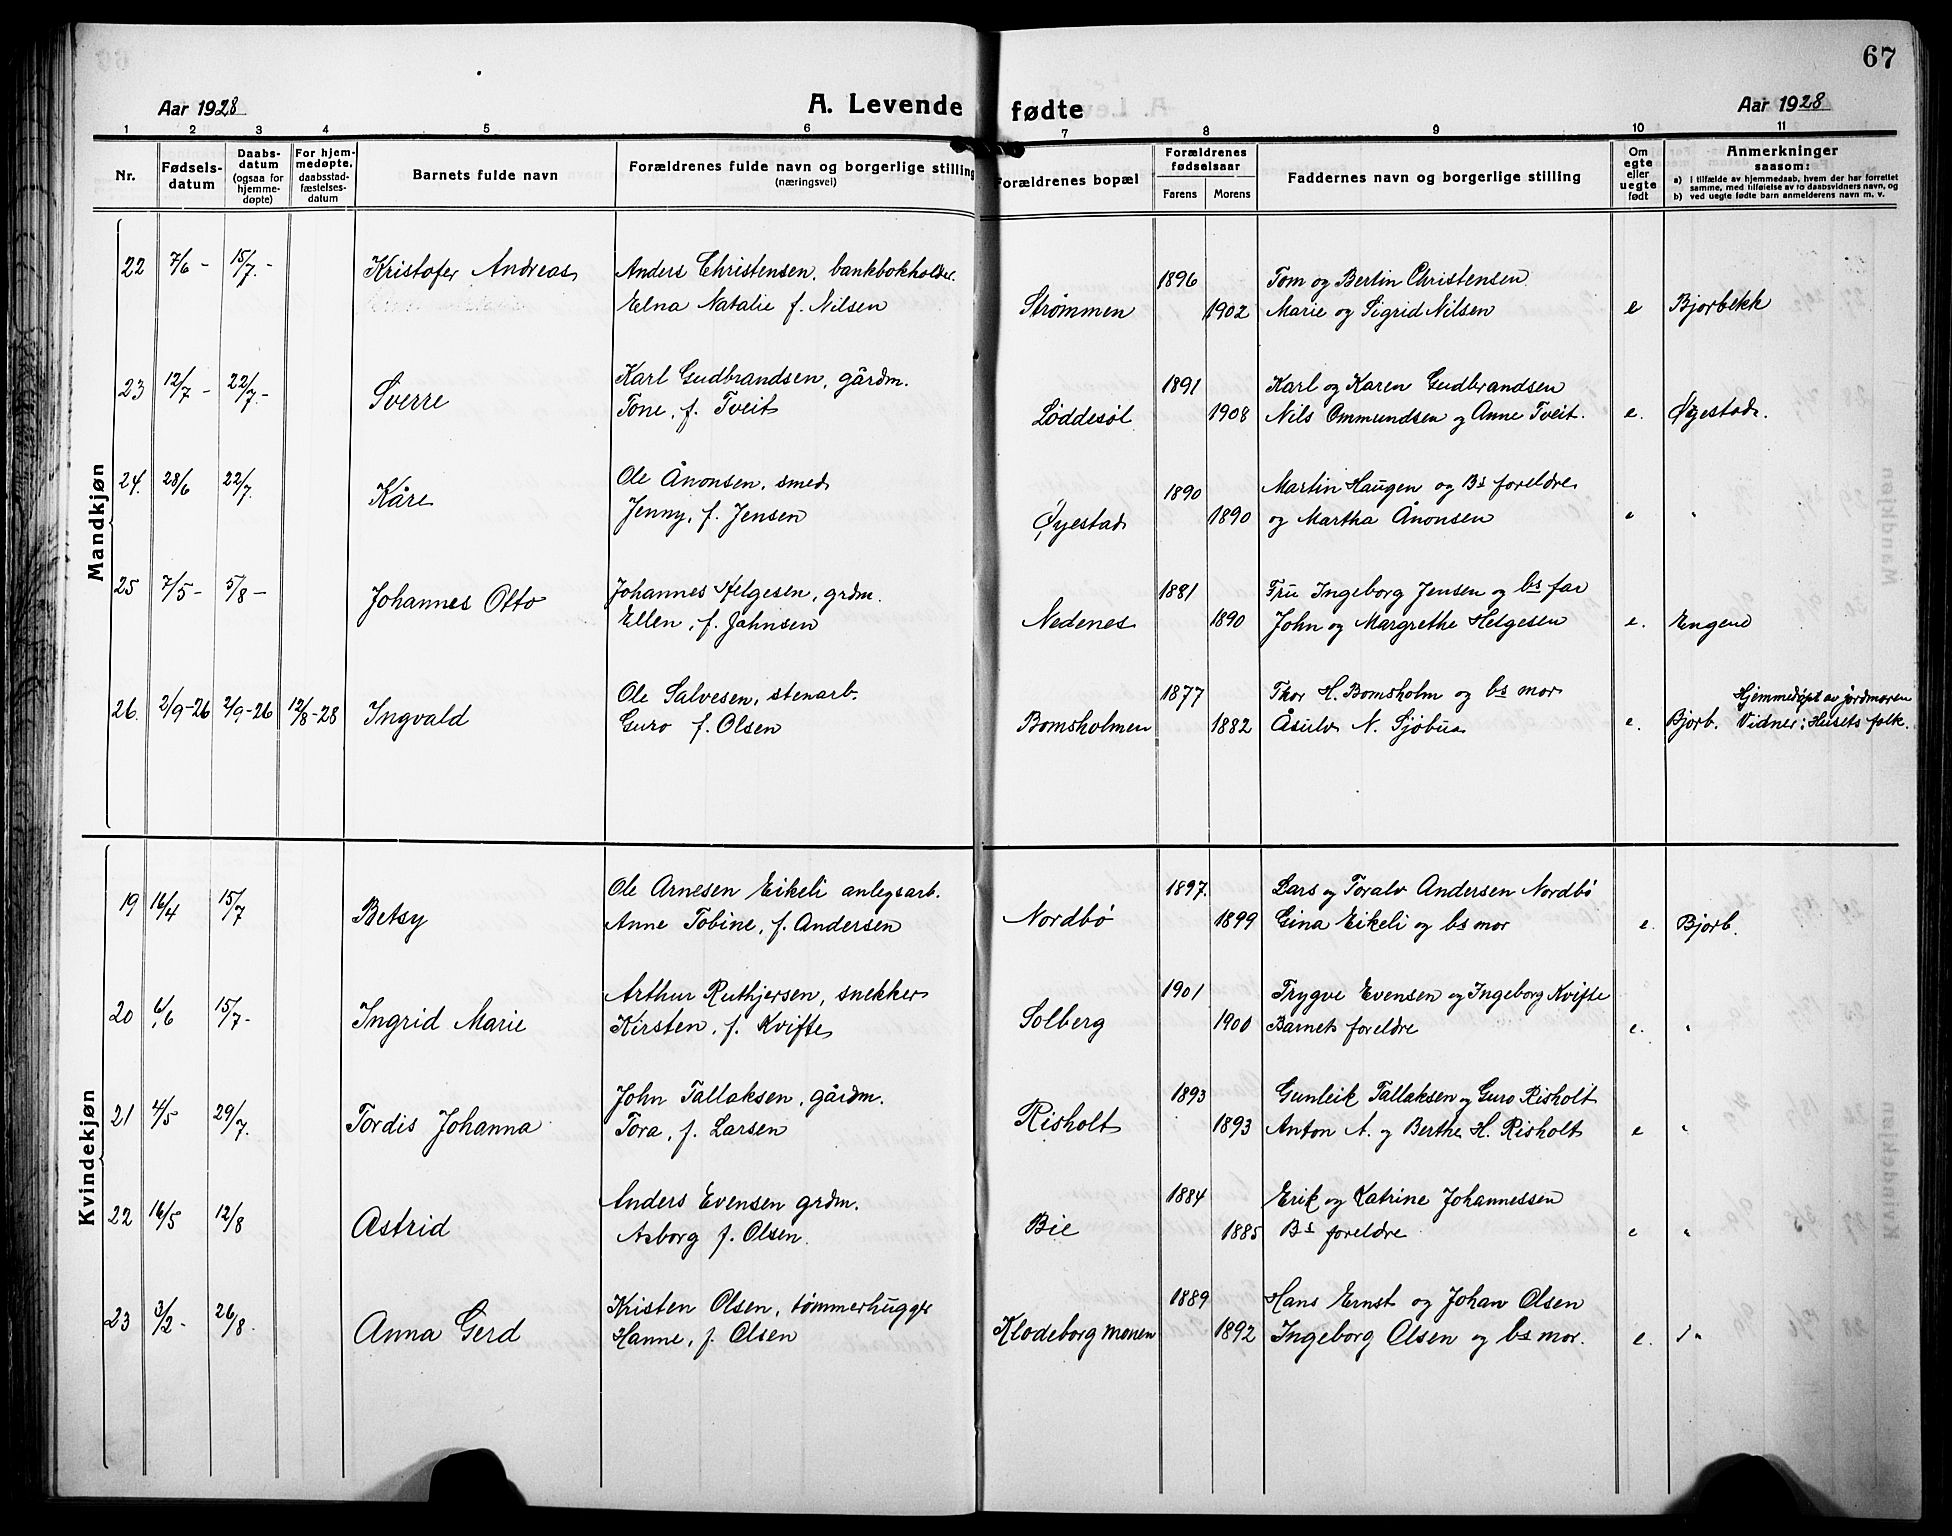 67
Aar 1928
A. Levende fødte
Aar 1928
1 2 3 4 5 6 7 8 9 10 11
Nr.
Fødsels-
datum
Daabs-
datum
(ogsaa for
hjemme-
døpte)
For hjem-
medøpte,
daabsstad-
fæstelses-
datum
Barnets fulde navn
Forældrenes fulde navn og borgerlige stilling
(næringsvei)
Forældrenes bopæl
Forældrenes
fødselsaar
Farens Morens
Faddernes navn og borgerlige stilling
Om
egte
eller
uegte
født
Anmerkninger
saasom:
a) i tilfælde av hjemmedaab, hvem der har forrettet
samme, med tilføielse av to daabsvidners navn, og
b) ved uegte fødte barn anmelderens navn m. v.
Mandkjøn
22 7/6 - 15/7. - Kristofer Andreas Anders Christensen, bankbokholder. 1896 Tom og Bertin Christensen
Elna Natalie f. Nilsen Strømmen 1902 Marie og Sigrid Nilsen e Bjorbekk
23 12/7 - 22/7. - Sverre Karl Gudbrandsen, gårdm. 1891 Karl og Karen Gudbrandsen
Tone, f. Tveit Løddesøl 1908 Nils Ommundsen og Anne Tveit. e. Øyestad.
24. 28/6 22/7. Kåre Ole Ånonsen, smed 1890 Martin Haugen og Bs foreldre
Jenny, f. Jensen Øyestad 1890 og Martha Ånonsen e "
25 7/5 - 5/8 - Johannes Otto Johannes Helgesen, grdm. 1881 Fru Ingeborg Jensen og bs far
Ellen, f. Jahnsen Nedenes 1890 John og Margrethe Helgesen e. Engene
26. 2/9-26 2/9-26 12/8-28 Ingvald Ole Salvesen, stenarb. 1877 Thor H. Bomsholm og bs mor Hjemmedøpt av jordmoren
Guro f. Olsen Bomsholmen 1882 Åsulv N. Sjøbua e. Bjorb. Vidner: Husets folk.
Kvindekjøn
19 16/4 15/7 Betsy Ole Arnesen Eikeli anlegsarb. 1897. Lars og Toralv Andersen Nordbø
Anne Tobine, f. Andersen Nordbø 1899 Gina Eikeli og bs mor e. Bjorb.
20 6/6 15/7 - Ingrid Marie Arthur Ruthjersen, snekker 1901 Trygve Evensen og Ingeborg Kvifte
Kirsten, f. Kvifte Solberg 1900 Barnets foreldre e. "
21 4/5 29/7. Tordis Johanna John Tallaksen, gårdm. 1893 Gunleik Tallaksen og Guro Risholt
Tora, f. Larsen Risholt 1893 Anton A. og Berthe H. Risholt e "
22 16/5 12/8 Astrid Anders Evensen grdm. 1884 Erik og Katrine Johannessen
Asborg f. Olsen. Bie 1885 Bs foreldre e "
23 3/2 - 26/8. Anna Gerd Kristen Olsen, tømmerhugger 1889 Hans Ernst og Johan Olsen
Hanne, f. Olsen Klodeborg monen 1892 Ingeborg Olsen og bs mor. e.